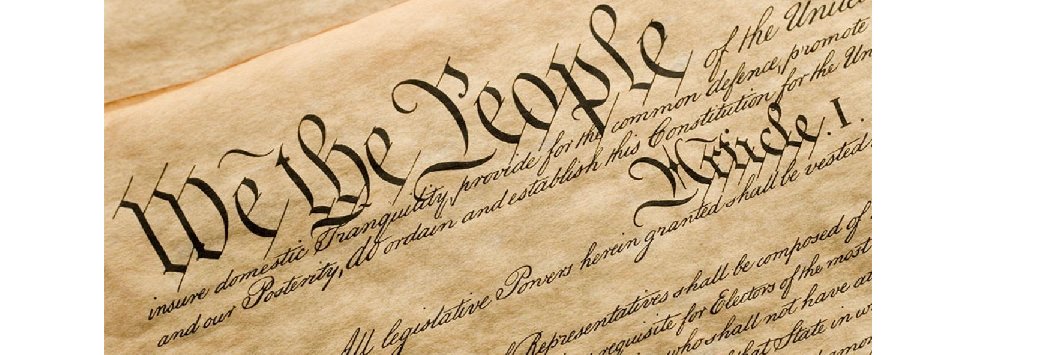 We the People of the United
insure domestic Tranquility, provide for the common defence, promote
and our Posterity, do ordain and establish this Constitution for the Un
Article. I.
All legislative Powers herein granted shall be vested
Representatives shall be composed of
requisite for Electors of the most
who shall not have at
hat State in w